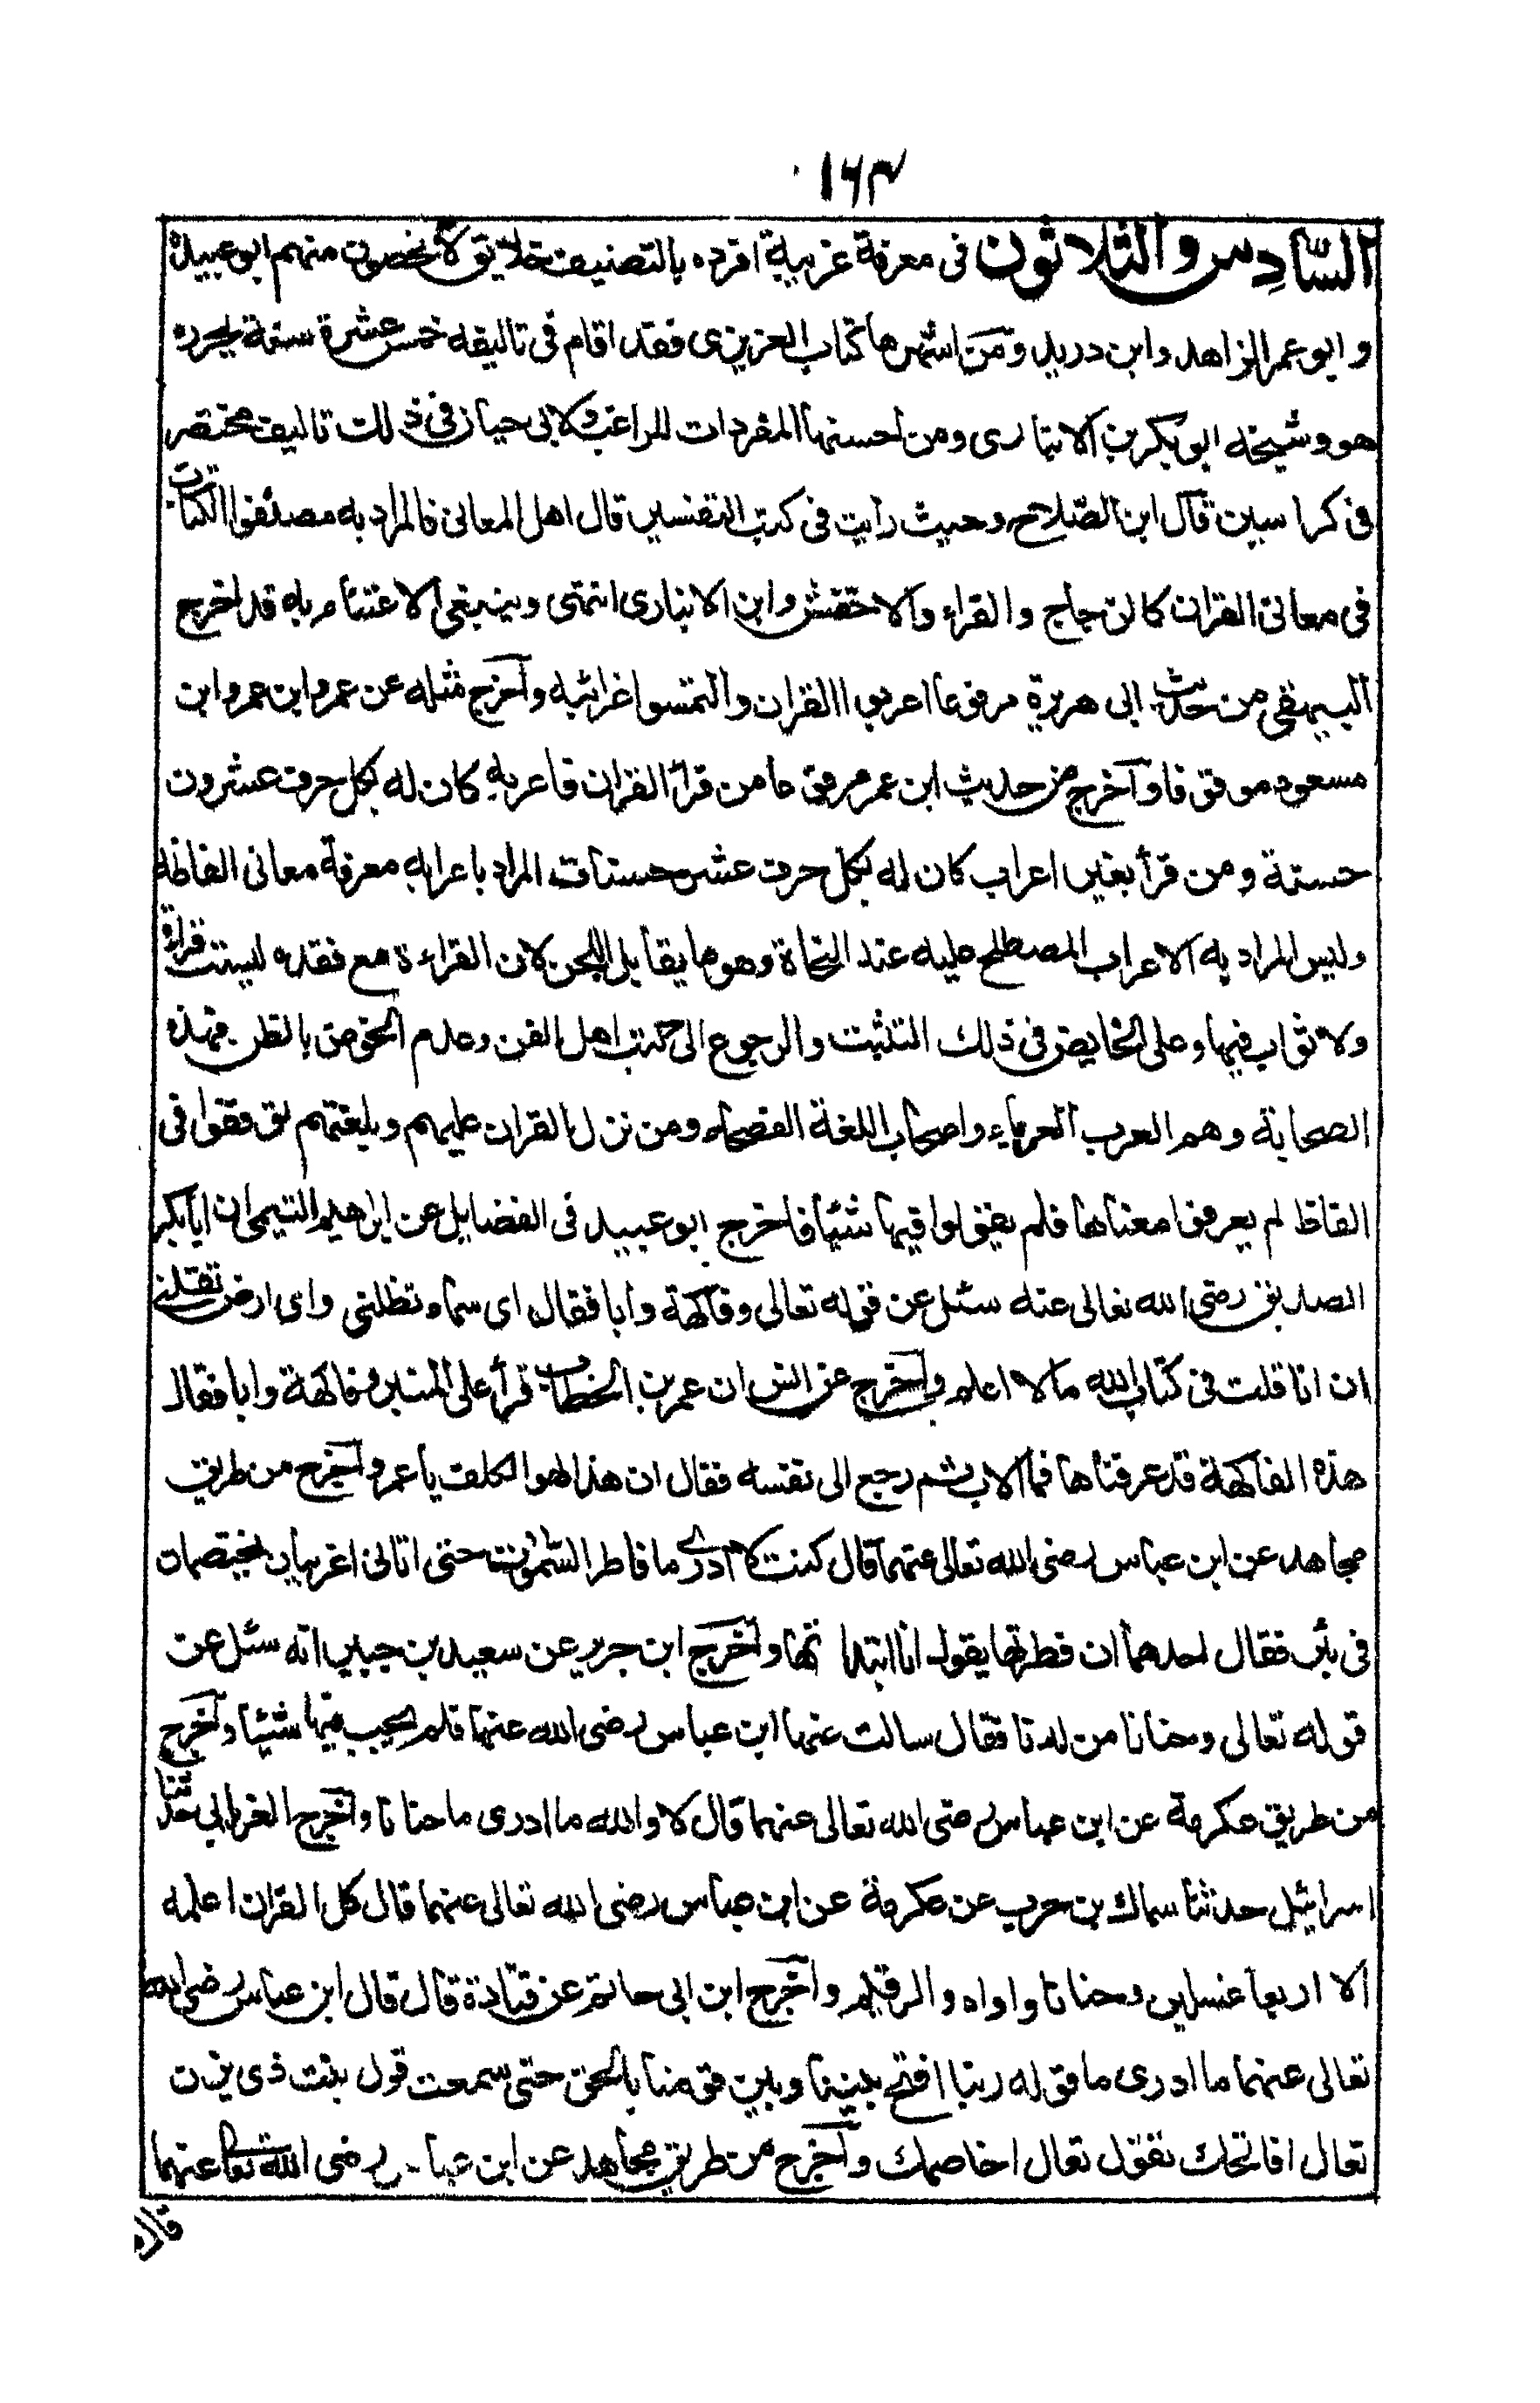 ١٦٣
السادس والثلاثون فى معرفة غريبه افرده بالتصنيف خلايق لا يحصون منهم ابو عبيدة
وابو عمر الزاهد وابن دريد ومن اشهرها كتاب العزيزى فقد اقام فى تاليفه خمس عشرة سنة يحرره
هو وشيخه ابو بكر بن الانبارى ومن احسنها المفردات للراغب ولابى حيان فى ذلك تاليف مختصر
فى كراسين قال ابن الصلاح وحيث رايت فى كتب التفسير قال اهل المعانى فالمراد به مصنفوا الكتاب
فى معانى القران كالزجاج والفراء والاخفش وابن الانبارى انتهى وينبغى الاعتناء به فقد اخرج
البيهقى من حديث ابى هريرة مرفوعا اعربوا القران والتمسوا غرائبه واخرج مثله عن عمر وابن عمر وابن
مسعود موقوفا واخرج من حديث ابن عمر مرفوعا من قرأ القران فاعربه كان له بكل حرف عشرون
حسنة ومن قرأ بغير اعراب كان له بكل حرف عشر حسنات المراد باعرابه معرفة معانى الفاظه
وليس المراد به الاعراب المصطلح عليه عند النحاة وهو ما يقابل اللحن لان القراءة مع فقده ليست قراءة
ولا ثواب فيها وعلى الخايض فى ذلك التثبت والرجوع الى كتب اهل الفن وعدم الخوض بالظن فهذه
الصحابة وهم العرب العرباء واصحاب اللغة الفصحاء ومن نزل القران عليهم وبلغتهم توقفوا فى
الفاظ لم يعرفوا معناها فلم يقولوا فيها شيئا فاخرج ابو عبيد فى الفضايل عن ابراهيم التيمى ان ابا بكر
الصديق رضى الله تعالى عنه سئل عن قوله تعالى وفاكهة وابا فقال اى سماء تظلنى واى ارض تقلنى
ان انا قلت فى كتاب الله ما لا اعلم واخرج عن انس ان عمر بن الخطاب قرأ على المنبر وفاكهة وابا فقال
هذه الفاكهة قد عرفناها فما الاب ثم رجع الى نفسه فقال ان هذا لهو الكلف يا عمر واخرج من طريق
مجاهد عن ابن عباس رضى الله تعالى عنهما قال كنت لا ادرى ما فاطر السموت حتى اتانى اعربيان يختصمان
فى بئر فقال احدهما ان فطرتها يقول انا ابتداتها واخرج ابن جرير عن سعيد بن جبير انه سئل عن
قوله تعالى وحنانا من لدنا فقال سالت عنها ابن عباس رضى الله عنهما فلم يجب فيها شيئا واخرج
من طريق عكرمة عن ابن عباس رضى الله تعالى عنهما قال لا والله ما ادرى ما حنانا واخرج الفريابى حدثنا
اسرائيل حدثنا سماك بن حرب عن عكرمة عن ابن عباس رضى الله تعالى عنهما قال كل القران اعلمه
الا اربعا غسلين وحنانا واواه والرقيم واخرج ابن ابى حاتم عن قتادة قال قال ابن عباس رضى الله
تعالى عنهما ما ادرى ما قوله ربنا افتح بيننا وبين قومنا بالحق حتى سمعت قول بنت ذى يزن
تعال افاتحك تقول تعال اخاصمك واخرج من طريق مجاهد عن ابن عباس رضى الله تعالى عنهما
قال